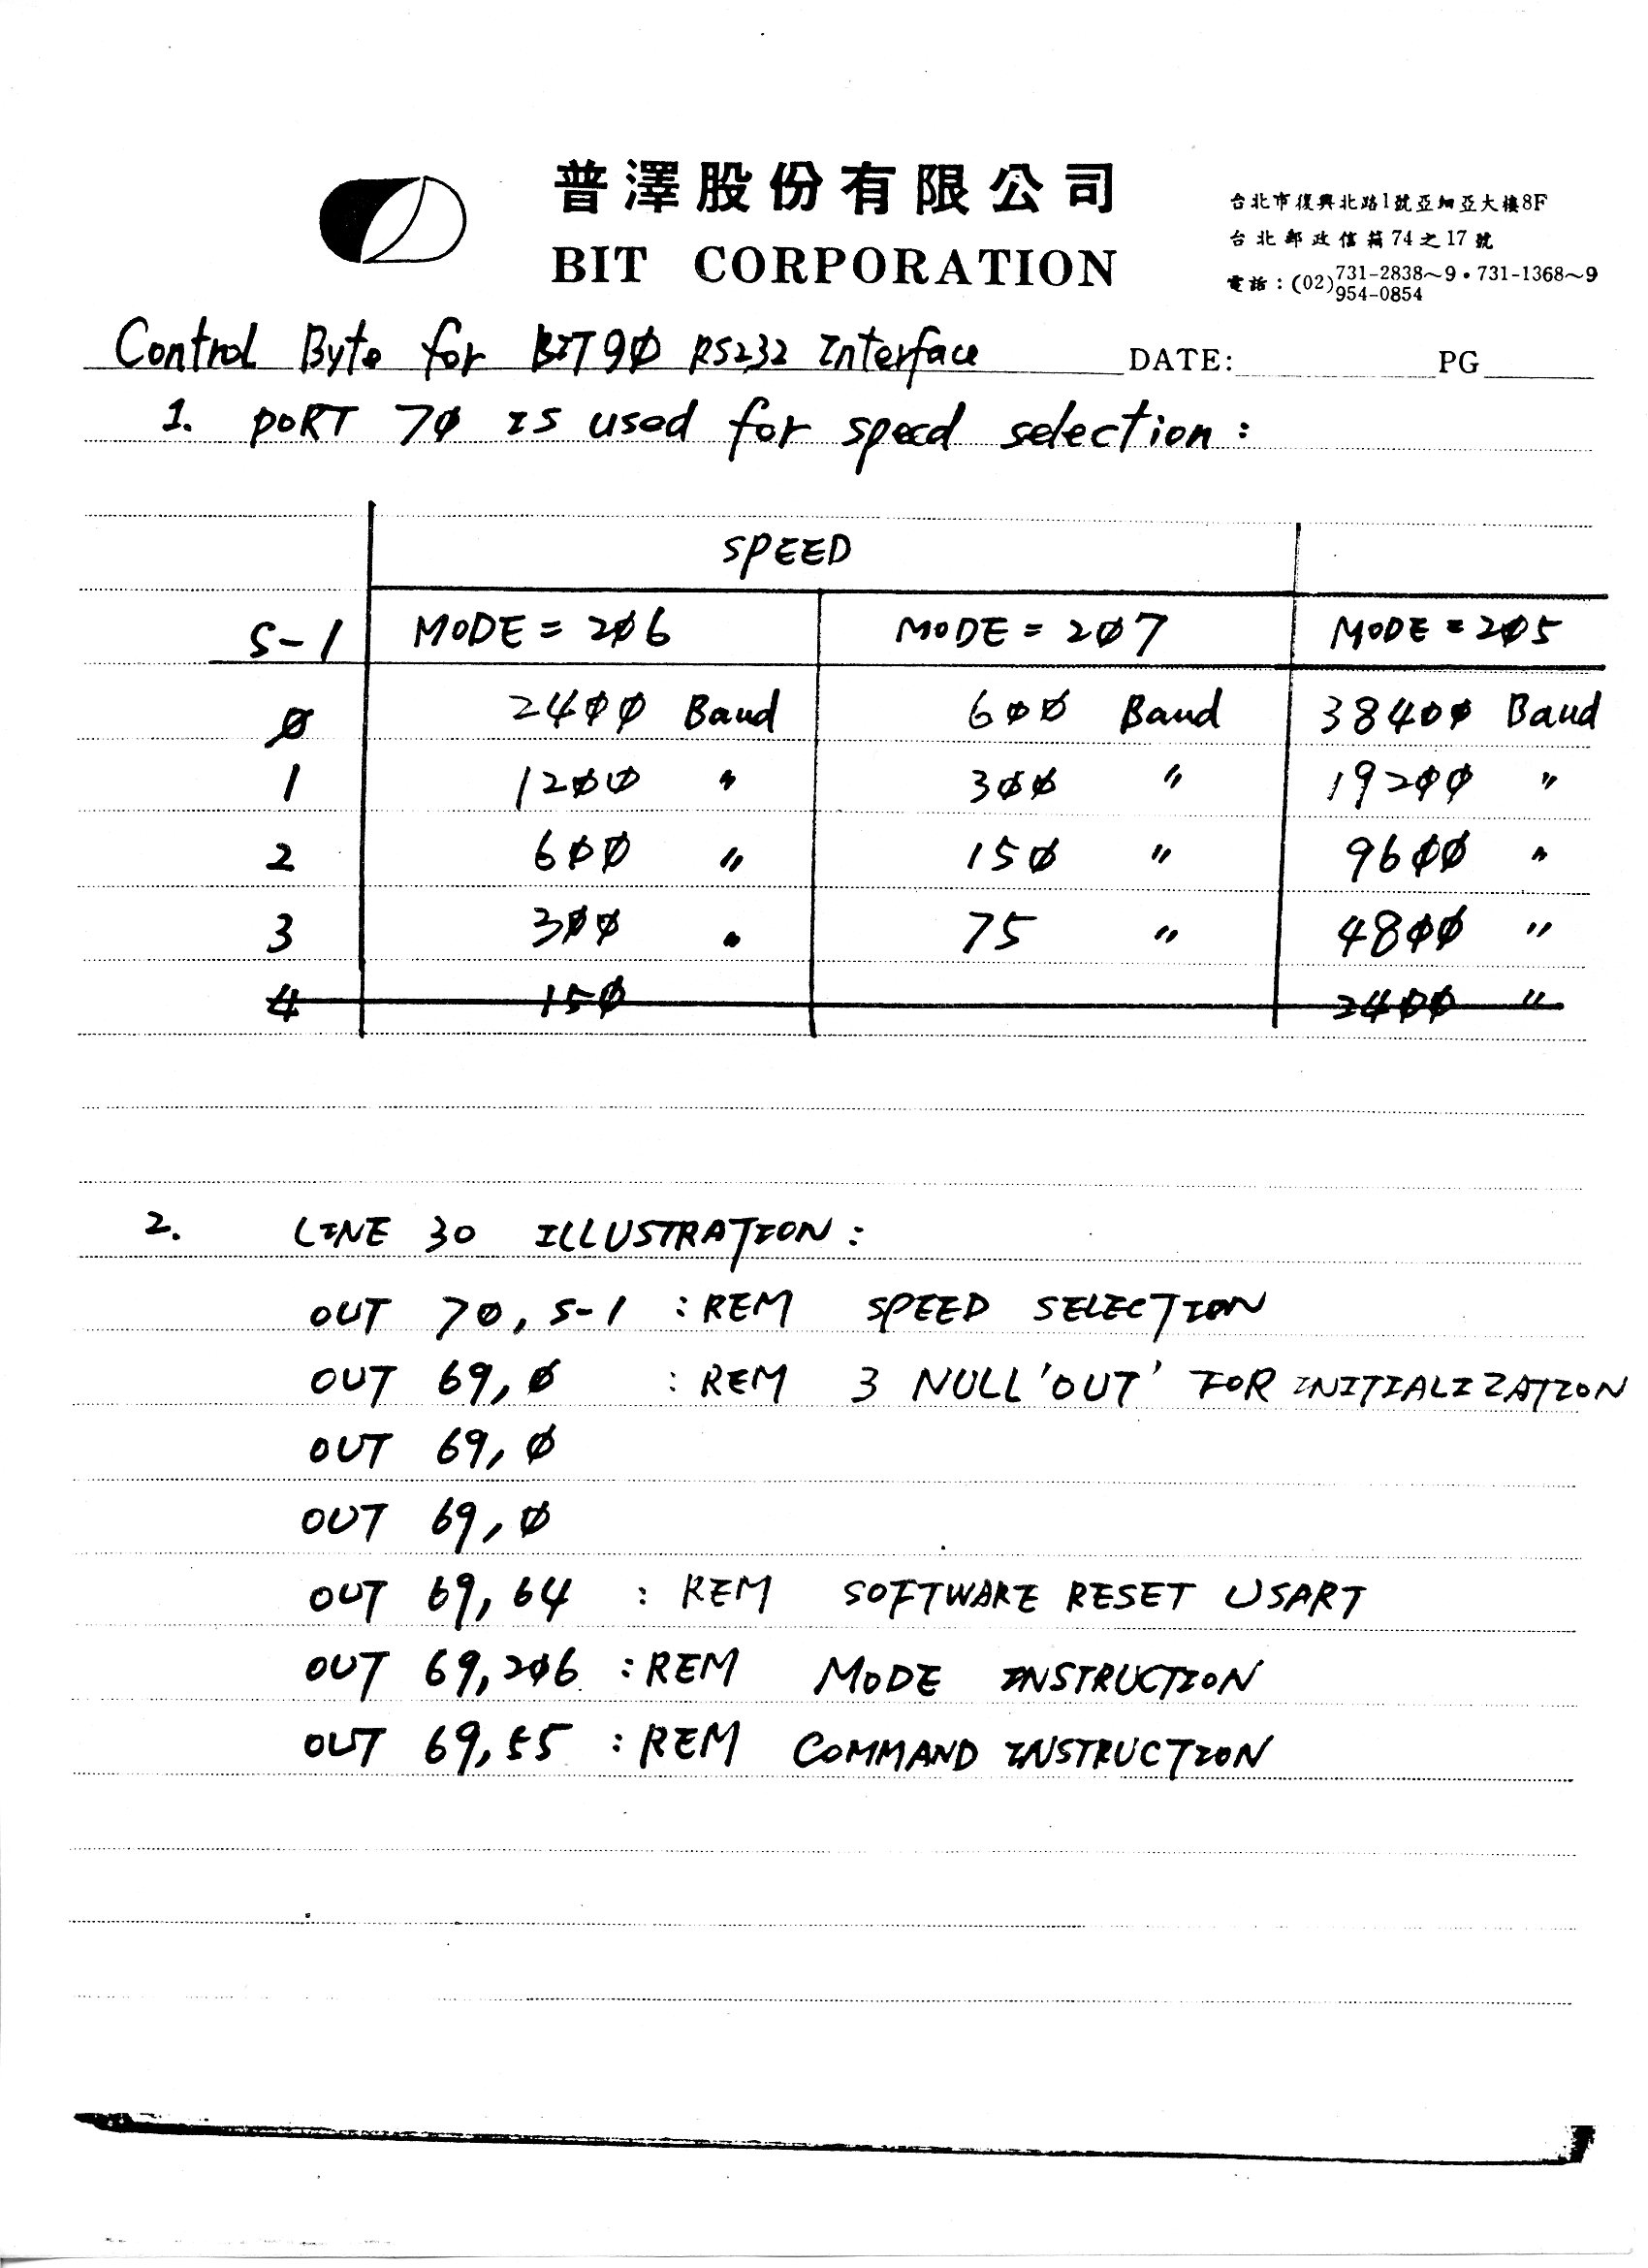 普澤股份有限公司
BIT CORPORATION
台北市復興北路1號亞細亞大樓8F
台北郵政信箱74之17號
電話：(02)731-2838～9・731-1368～9
954-0854
Control Byte for BIT90 RS232 Interface DATE: PG
1. PORT 70 IS used for speed selection:
SPEED
S-1 MODE = 206 MODE = 207 MODE = 205
0 2400 Baud 600 Baud 38400 Baud
1 1200 " 300 " 19200 "
2 600 " 150 " 9600 "
3 300 " 75 " 4800 "
4 150 2400 "
2. LINE 30 ILLUSTRATION:
OUT 70, S-1 : REM SPEED SELECTION
OUT 69, 0 : REM 3 NULL 'OUT' FOR INITIALIZATION
OUT 69, 0
OUT 69, 0
OUT 69, 64 : REM SOFTWARE RESET USART
OUT 69, 206 : REM MODE INSTRUCTION
OUT 69, 55 : REM COMMAND INSTRUCTION